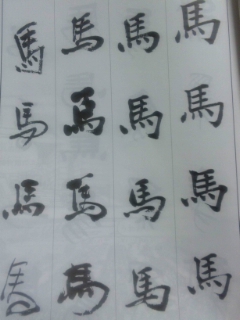 馬馬馬馬
馬馬馬馬
馬馬馬馬
馬馬馬馬